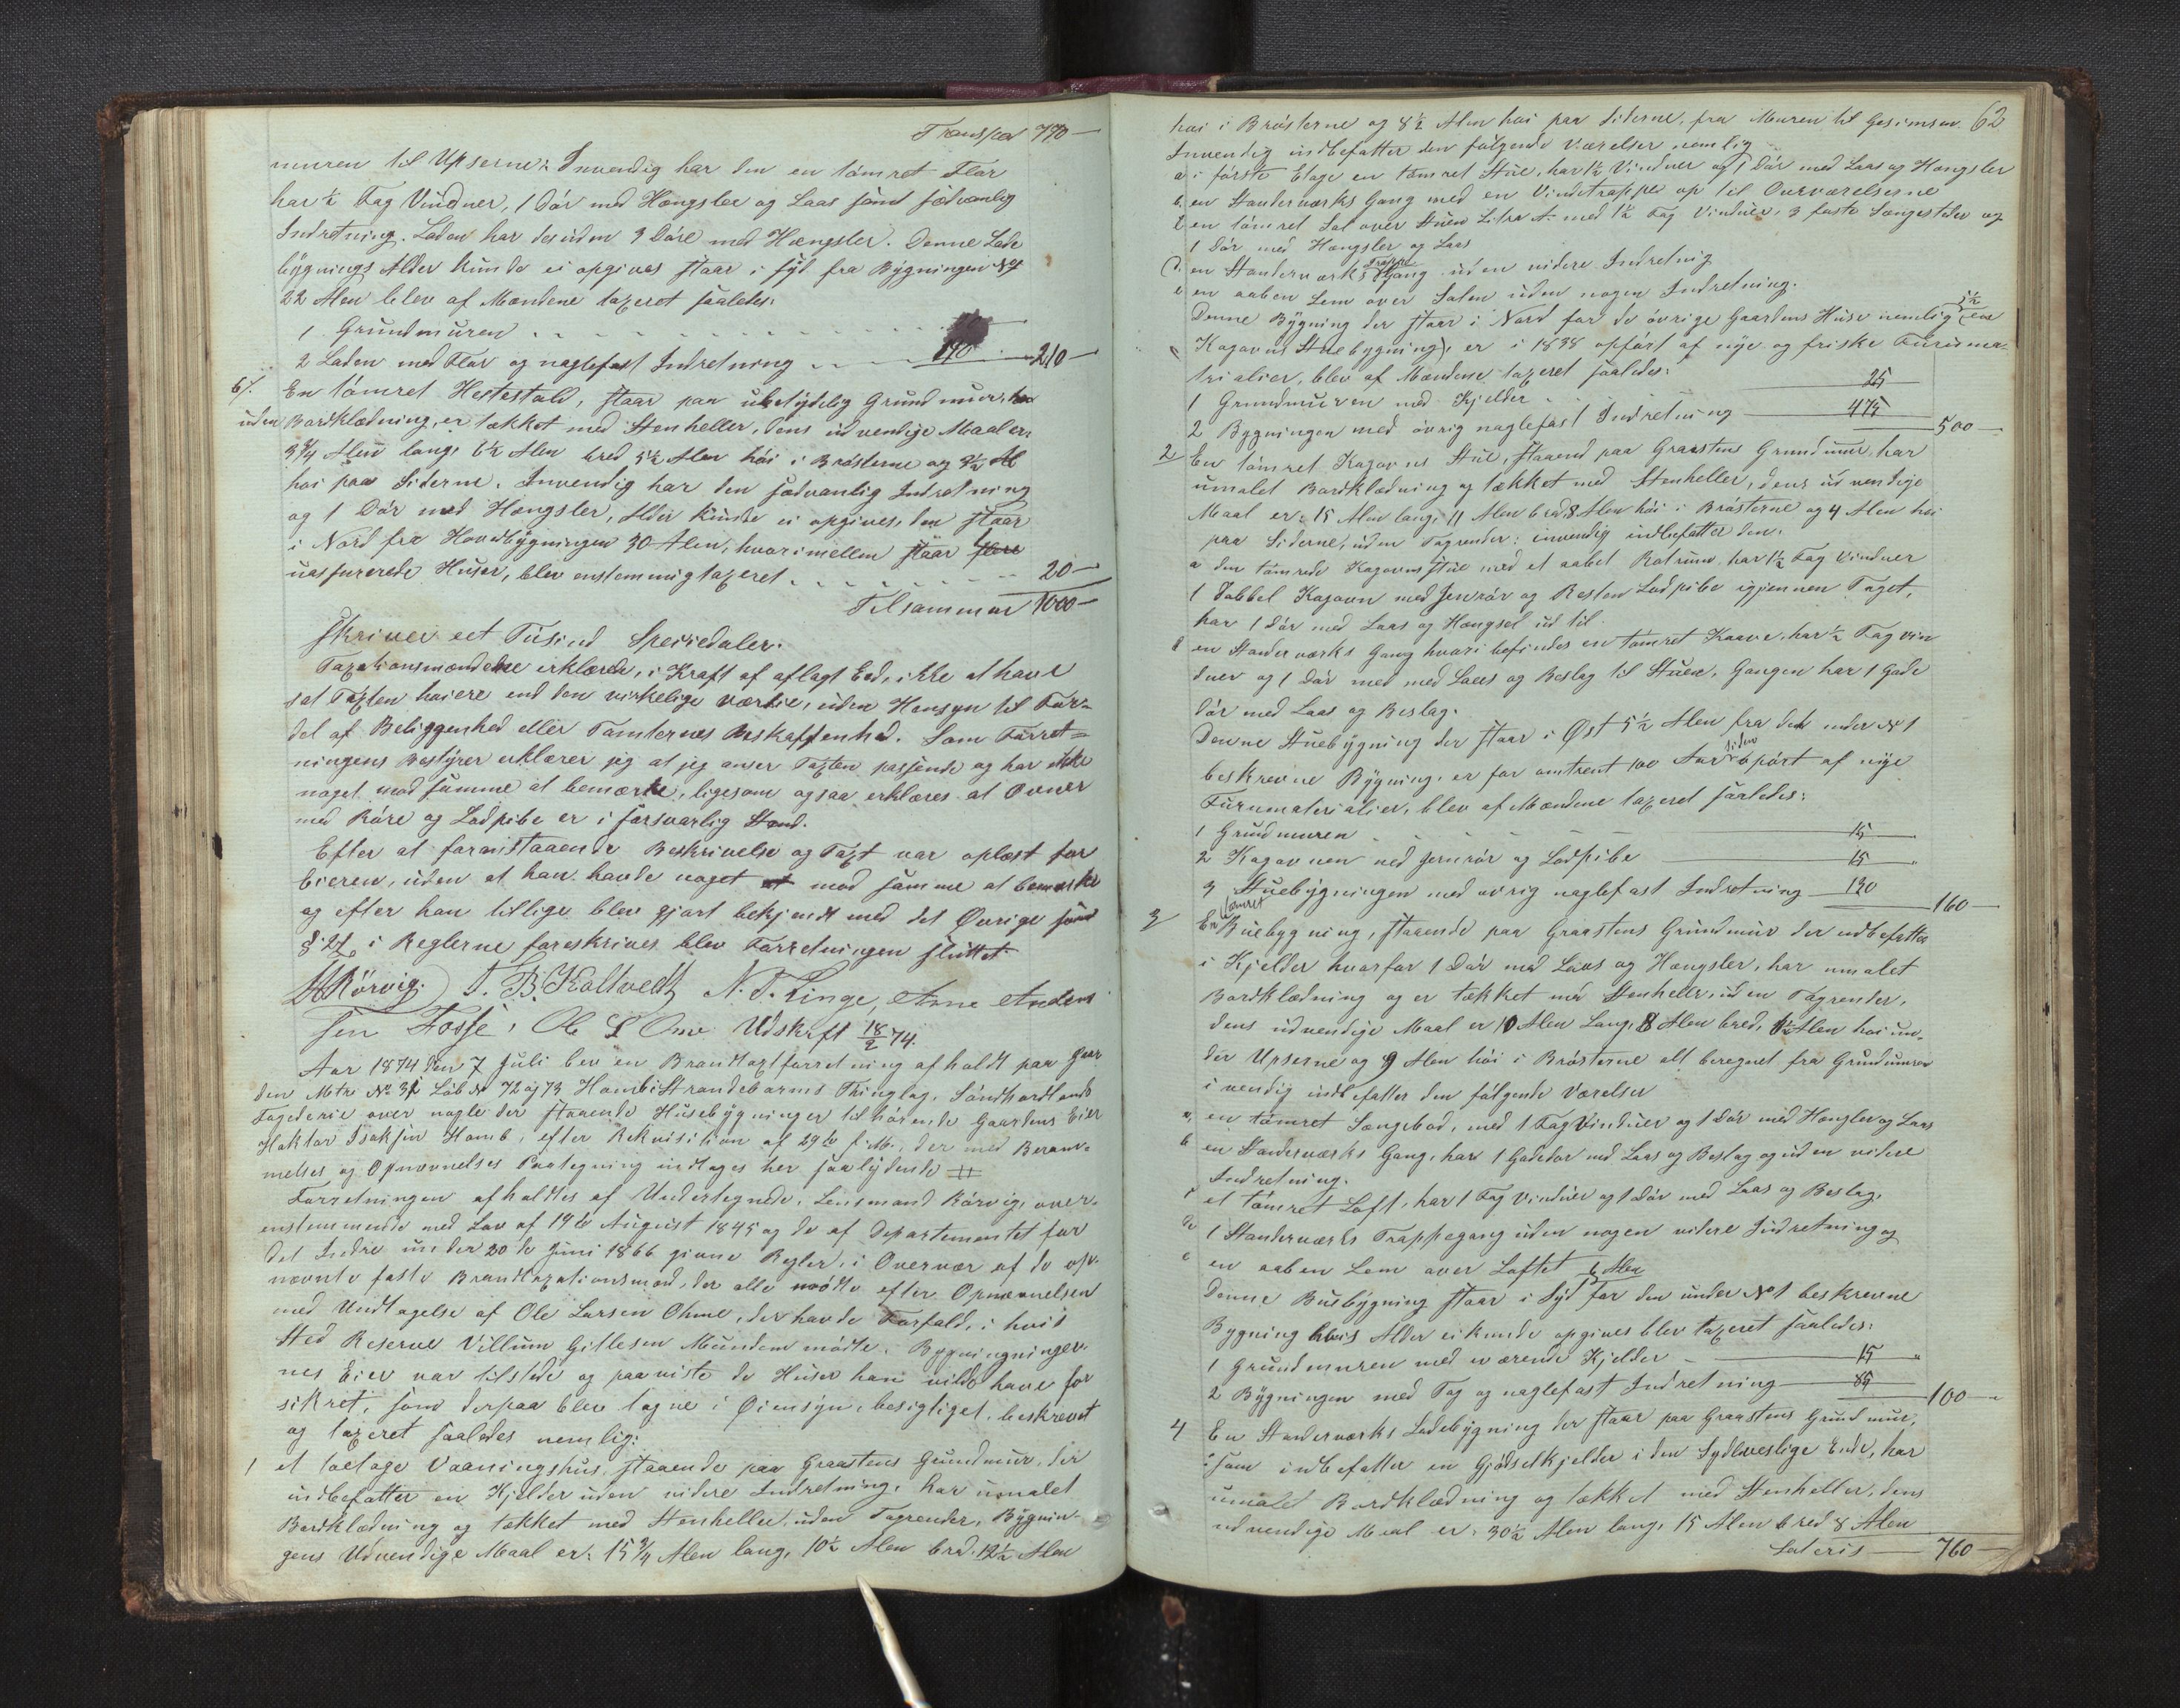 Transport 770 —
muren til Upserne; Invendig har den en tømret Flor
har ½ Fag Vinduer, 1 Dør med Hængsler og Laas samt sædvanlig
Indretning. Laden har desuden 3 Døre med Hængsler. Denne Lade
bygnings Alder kunde ei opgives staar i Syd fra Bygningen
22 Alen blev af Mændene taxeret saaledes:
1 Grundmuren
2 Laden med Flor og naglefast Indretning 210 —
6/. En tømret Hestestald, staar paa ubetydelig Grundmuur,
uden Bordklædning, er tækket med Stenheller, dens udvendige Maal er:
9¾ Alen lang, 6½ Alen bred 5½ Alen høi i Brøsterne og 3½ Al
høi paa Siderne. Invendig har den sædvanlig Indretning
og 1 Dør med Hængsler, Alder kunde ei opgives, den staar
i Nord fra Hovedbygningen 30 Alen, hvorimellem staar flere
uassurerede Huser, blev enstemmig taxeret 20 —
Tilsammen 1000 —
skriver eet Tusind Speciedaler.
Taxationsmændene erklærede, i Kraft af aflagt Eed, ikke at have
sat Taxten høiere end den virkelige Værdie, uden Hensyn til For-
del af Beliggenhed eller Tomternes Beskaffenhed. Som Forret-
ningens Bestyrer erklærer jeg at jeg anser Taxten passende og har ikke
noget mod samme at bemærke, ligesom ogsaa erklæres at Ovner
med Røre og Ladpibe er i forsvarlig Stand.
Efter at foranstaaende Beskrivelse og Taxt var oplæst for
Eieren, uden at han havde noget at mod samme at bemærke
og efter han tillige blev gjort bekjendt med det Øvrige som
§ 27 i Reglerne foreskrives blev Forretningen sluttet
Rørvig. T. B. Koltvedt N. T. Linge, Arne Anders
sen Fosse, Ole L Ome Udskrift 18/2 74.
Aar 1874 den 7 Juli blev en Brandtaxtforretning afholdt paa Gaar
den Mtr. No 31 Løb No 72 og 73 Homb i Strandebarms Thinglag, Søndhordlands
Fogederie over nogle der staaende Husebygninger tilhørende Gaardens Eier
Haktor Isaksen Homb, efter Rekvisition af 29de f. M., der med Beram-
melses og Opnævnelses Paategning indtages her saalydende #
Forretningen afholdtes af Undertegnede, Lensmand Rørvig, over-
enstemmende med Lov af 19de August 1845 og de af Departementet for
det Indre under 20de Juni 1866 givne Regler, i Overvær af de op-
nævnte faste Brandtaxationsmænd, der alle mødte efter Opnævnelsen
med Undtagelse af Ole Larsen Ohme, der havde Forfald, i hvis
Sted Reserve Villum Gitlesen Mundem mødte. Bygningninger-
nes Eier var tilstede og paaviste de Huser han vilde have for
sikret, som derpaa blev tagne i Øiensyn, besigtiget, beskrevet
og taxeret saaledes nemlig:
1 et toetage Vaaningshus, staaende paa Graastens Grundmur, der
indbefatter en Kjelder uden videre Indretning, har umalet
Bordklædning og tækket med Stenheller, uden Tagrender, Bygnin-
gens Udvendige Maal er: 15¾ Alen lang, 10½ Alen bred. 12½ Alen
62
høi i Brøsterne og 8½ Alen høi paa Siderne, fra Muren til Gesimsen.
Invendig indbefatter den følgende Værelser nemlig
a i første Etage en tømret Stue, har 1½ Vinduer og 1 Dør med Laas og Hængsler
b. en Standerværks Gang med en Vindetrappe op til Overværelserne
c en tømret Sal over Stuen Litra A. med 1½ Fag Vinduer, 3 faste Sængesteder og
1 Dør med Hængsler og Laas
d. en Standerværks Trappe Gang uden videre Indretnig
e en aaben Lem over Salen uden nogen Indretning.
Denne Bygning der staar i Nord for de øvrige Gaardens Huse nemlig 5½
Kagovns Stuebygning, er i 1838 opført af nye og friske Furuma-
trialier, blev af Mændene taxeret saaledes:
1 Grundmuren med Kjelder 25
2 Bygningen med øvrig naglefast Indretning 475 500 —
2 En tømret Kagovns Stue, staaend paa Graastens Grundmuur, har
umalet Bordklædning og tækket med Stenheller, dens udvendige
Maal er: 15 Alen lang, 11 Alen bred, 8 Alen høi i Brøsterne og 4 Alen høi
paa Siderne, uden Tagrender; invendig indbefatter den:
a den tømrede Kagovnsstue med et aabet Rotrum, har 1½ Fag Vinduer
1 Dobbel Kagovn med Jernrør og Resten Ladpibe igjennen Taget,
har 1 Dør med Laas og Hængsel ud til
b en Standerværks Gang hvori befindes en tømret Kaave, har ½ Fag vin
duer og 1 Dør med med Laas og Beslag til Stuen, Gangen har 1 Gade
dør med Laas og Beslag.
Denne Stuebygning der staar i Øst 5½ Alen fra den under No 1
beskrevne Bygning, er for omtrent 100 Aar siden opført af nye
Furumaterialier, blev af Mændene taxeret saaledes:
1 Grundmuren 15
2 Kagovnen med Jernrør og Ladpibe 15
3 Stuebygningen med øvrig naglefast Indretning 130 160 —
3 En tømret Buebygning, staaende paa Graastens Grundmur der indbefatter
i Kjelder hvorfor 1 Dør med Laas og Hængsler, har umalet
Bordklædning og er tækket med Stenhelle, uden Tagrender,
dens udvendige Maal er 10 Alen Lang, 8 Alen bred, 6½ Alen høi un-
der Upserne og 9 Alen høi i Brøsterne alt beregnet fra Grundmuren
ivendig indbefatter den følgende Værelser
a, en tømret Sængebod, med 1 Fag Vinduer og 1 Dør med Hængler og Laas
b en Standerværks Gang, har 1 Gadedør med Laas og Beslag og uden videre
Indretning.
c et tømret Loft, har 1 Fag Vinduer og 1 Dør med Laas og Beslag,
d 1 Standerværks Trappegang uden nogen videre Indretning og
e en aaben Lem over Loftet 6 Alen
Denne Buebygning staar i Syd for den under No 1 beskrevne
Bygning hvis Alder ei kunde opgives blev taxeret saaledes:
1 Grundmuren med værende Kjelder 15
2 Bygningen med Tag og naglefast Indretning 85 100 —
4 En Standerværks Ladebygning der staar paa Graastens Grundmur,
som indbefatter en Gjødselkjelder i den Sydlvestlige Ende, har
umalet Bordklædning og tækket med Stenheller, dens
udvendige Maal er: 30½ Alen lang, 15 Alen bred 8 Alen
Lateris — 760 —